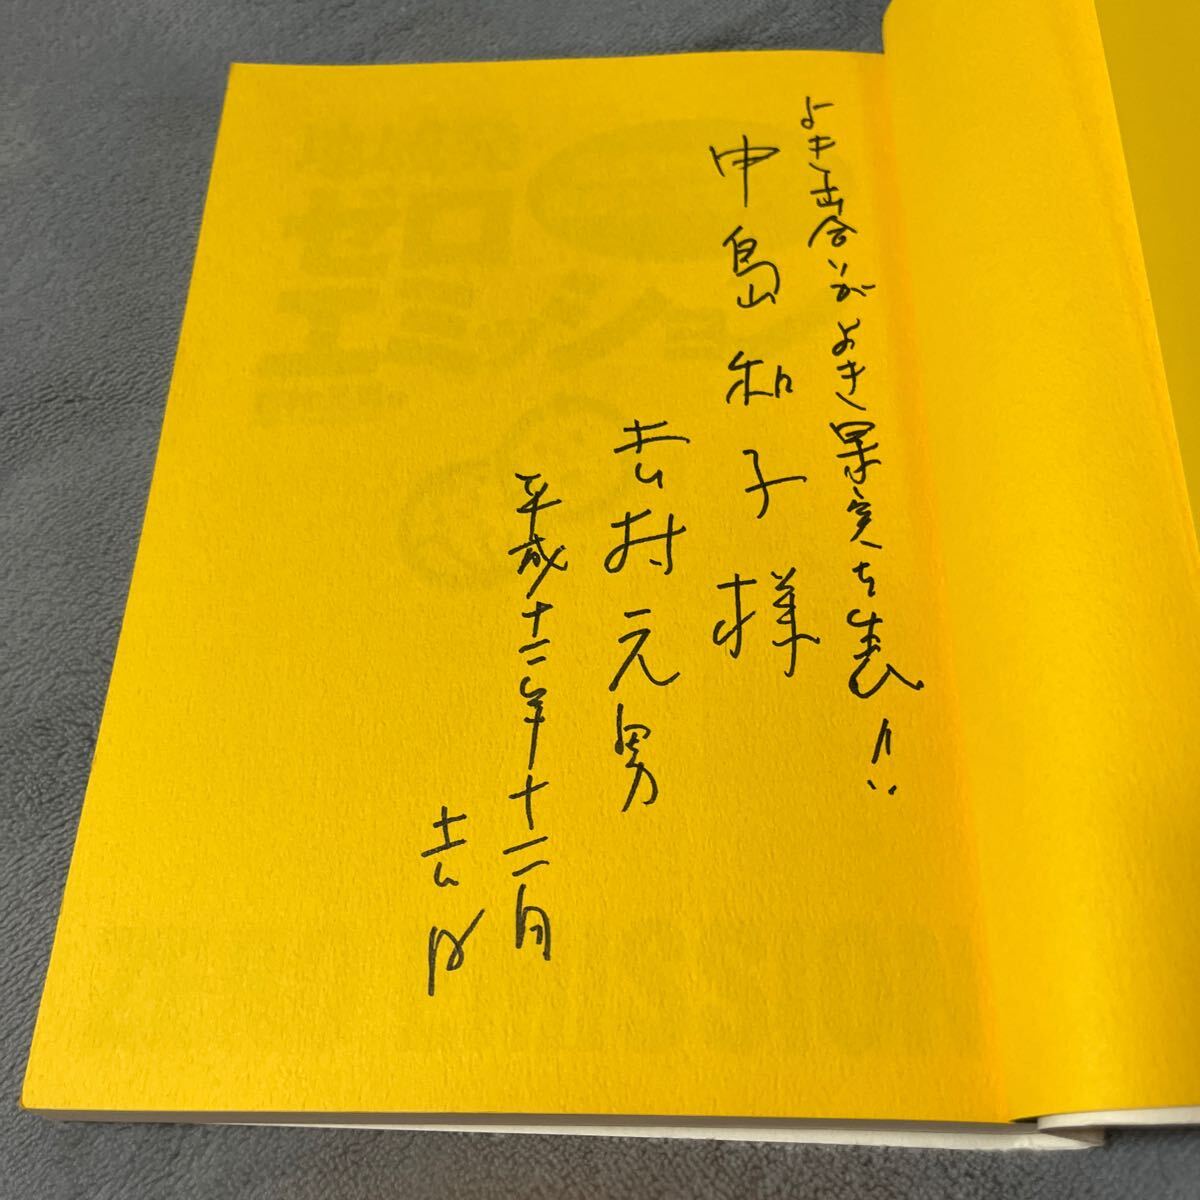 よき出合いがよき果実を表!!
中島和子様
吉村元男
平成十二年十二月
吉日
ゼロ
エミッション